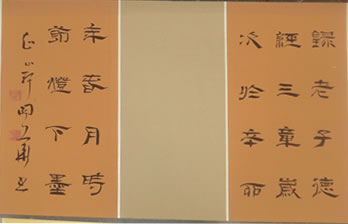 錄老子德
經三章歲
次於辛卯
年春月時
節燈下墨